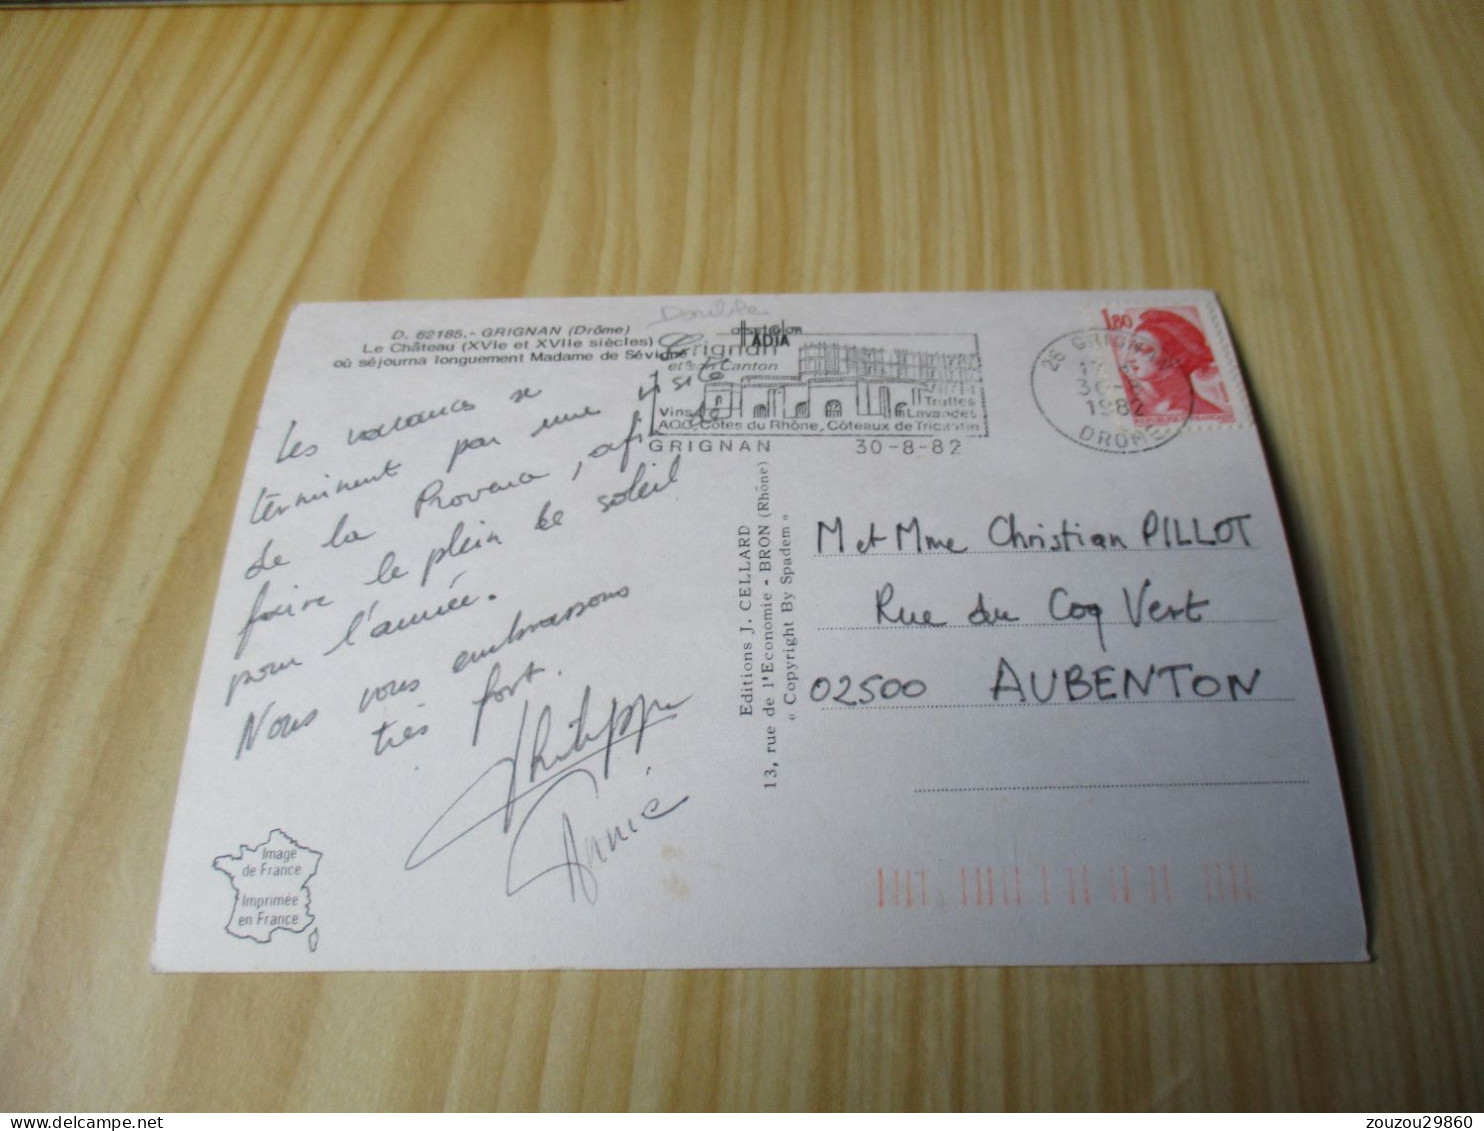 Double
D. 62185.- GRIGNAN (Drôme)
Le Château (XVIe et XVIIe siècles)
où séjourna longuement Madame de Sévigné
Les vacances se
terminent par une visite
de la Provence, afin de
faire le plein de soleil
pour l'année.
Nous vous embrassons
très fort.
Philippe
Annie
Image
de France
Imprimée
en France
Editions J. CELLARD
13, rue de l'Economie - BRON (Rhône)
« Copyright By Spadem »
ADIA
Grignan
et son Canton
Truffes
Vins Lavandes
AOC, Côtes du Rhône, Côteaux de Tricastin
GRIGNAN 30-8-82
1,80
26 GRIGNAN
1982
DROME
M et Mme Christian PILLOT
Rue du Coq Vert
02500 AUBENTON
zouzou29860